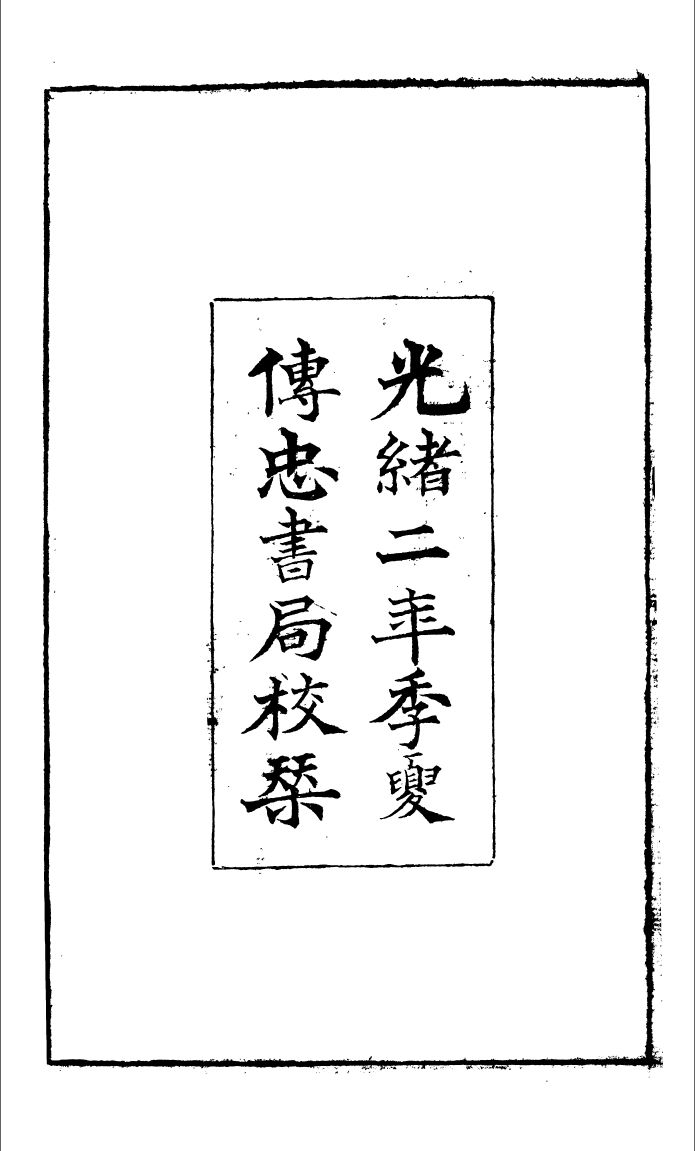 光緒二年季夏
傳忠書局校栞